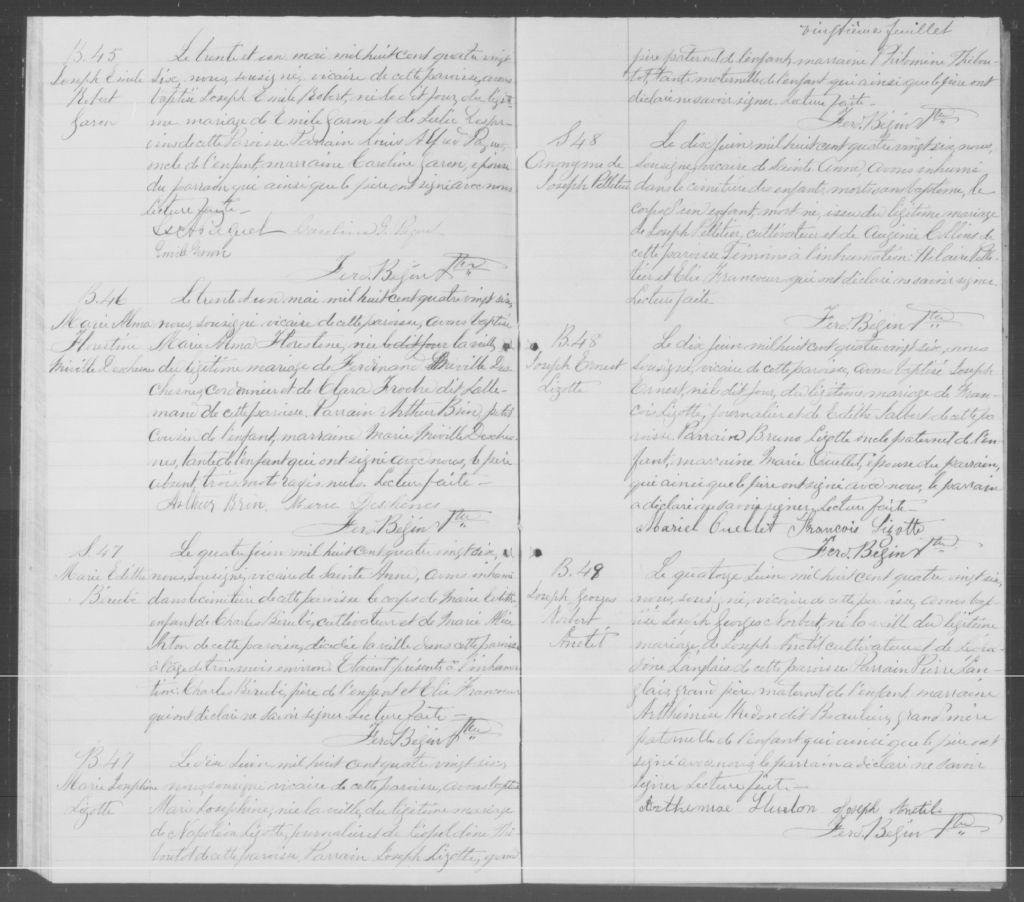 B.45
Joseph Emile
Robert
Garon
Le trente et un mai mil huit cent quatre vingt
six, nous, soussigné, vicaire de cette paroisse, avons
baptisé Joseph Emile Robert, né le et jour, du légiti-
me mariage de Emile Garon et de Lulée Lespr-
rins de cette Paroisse Parrain Louis Alfred Paquet
oncle de l'enfant, marraine Caroline Garon, épouse
du parrain, qui ainsi que le père ont signé avec nous
Lecture faite—
Ls A Paquet Caroline G. Paquet
Emile Garon
Ferd. Bégin Ptre
B.46
Marie Alma
Floristine
Miville Deschenes
Le trente et un mai mil huit cent quatre vingt six,
nous, soussigné vicaire de cette paroisse, avons baptisé
Marie Alma Floristine, née le dit jour la veille
du légitime mariage de Ferdinand Miville Des
Chesnes, cordonnier et de Clara Roché dit Lalle-
mand de cette paroisse. Parrain Arthur Brin, petit
cousin de l'enfant, marraine Marie Miville Desche-
nes, tante de l'enfant qui ont signé avec nous, le père
absent, trois mots rayés nuls. Lecture faite—
Arthur Brin. Marie Deshênes
Ferd. Bégin Ptre
S 47
Marie Edithe
Bérubé
Le quatre juin mil huit cent quatre vingt six,
nous, soussigné, vicaire de Sainte Anne, avons inhumé
dans le cimitière de cette paroisse le corps de Marie Edithe
enfant de Charles Bérubé, cultivateur et de Marie Alice
de cette paroisse, décédée la veille dans cette paroisse
à l'âge de trois mois environ. Etaient présents à l'inhuma-
tion: Charles Bérubé, père de l'enfant et Elie Francoeur
qui ont déclaré ne savoir signer Lecture faite—
Ferd. Bégin Ptre
B.47
Marie Josephine
Lizotte
Le dix Juin mil huit cent quatre vingt six,
nous soussigné vicaire de cette paroisse, avons baptisé
Marie Josephine, née la veille, du légitime mariage
de Napoléon Lizotte, journalier et de Léopoldine Thi-
boutot de cette paroisse, Parrain Joseph Lizotte, grand
vingtième feuillet
père paternel de l'enfant, marraine Philomène Thibou-
tot, tante maternelle de l'enfant qui ainsi que le père ont
déclaré ne savoir signer Lecture faite—
Ferd. Bégin Ptre
S 48
Anonyme de
Joseph Pelletier
Le dix juin, mil huit cent quatre vingt six, nous,
soussigné, vicaire de Sainte Anne, avons inhumé
dans le cimitière des enfants morts sans baptême, le
corps d'un enfant, mort né, issu du légitime mariage
de Joseph Pelletier, cultivateur et de Eugénie Collins de
cette paroisse. Témoins à l'inhumation: Hilaire Pelle-
tier et Elie Francoeur, qui ont déclaré ne savoir signer.
Lecture faite.
Ferd. Bégin Ptre
B.48
Joseph Ernest
Lizotte
Le dix juin mil huit cent quatre vingt six, nous
soussigné, vicaire de cette paroisse, avons baptisé Joseph
Ernest, né le dit jour, du légitime mariage de Fran-
cois Lizotte, journalier et de Edithe Jalbert de cette pa-
roisse Parrain Bruno Lizotte oncle paternel de l'en-
fant, marraine Marie Ouellet, épouse du parrain,
qui ainsi que le père ont signé avec nous, le parrain
a déclaré ne savoir signer, Lecture faite—
Mariel Ouellet François Lizotte
Ferd. Bégin Ptre
B.49
Joseph Georges
Norbert
Anctil
Le quatorze Juin mil huit cent quatre vingt six,
nous, soussigné, vicaire de cette paroisse, avons bap-
tisé Joseph Georges Norbert, né la veille du légitime
mariage de Joseph Anctil cultivateur et de
Langlais de cette paroisse Parrain Pierre Lan-
glais, grand père maternel de l'enfant, marraine
Arthémise Hudon dit Beaulieu, grand mère
paternelle de l'enfant qui ainsi que le père ont
signé avec nous, le parrain a déclaré ne savoir
signer Lecture faite—
Arthemise Hudon Joseph Anctil
Ferd. Bégin Ptre